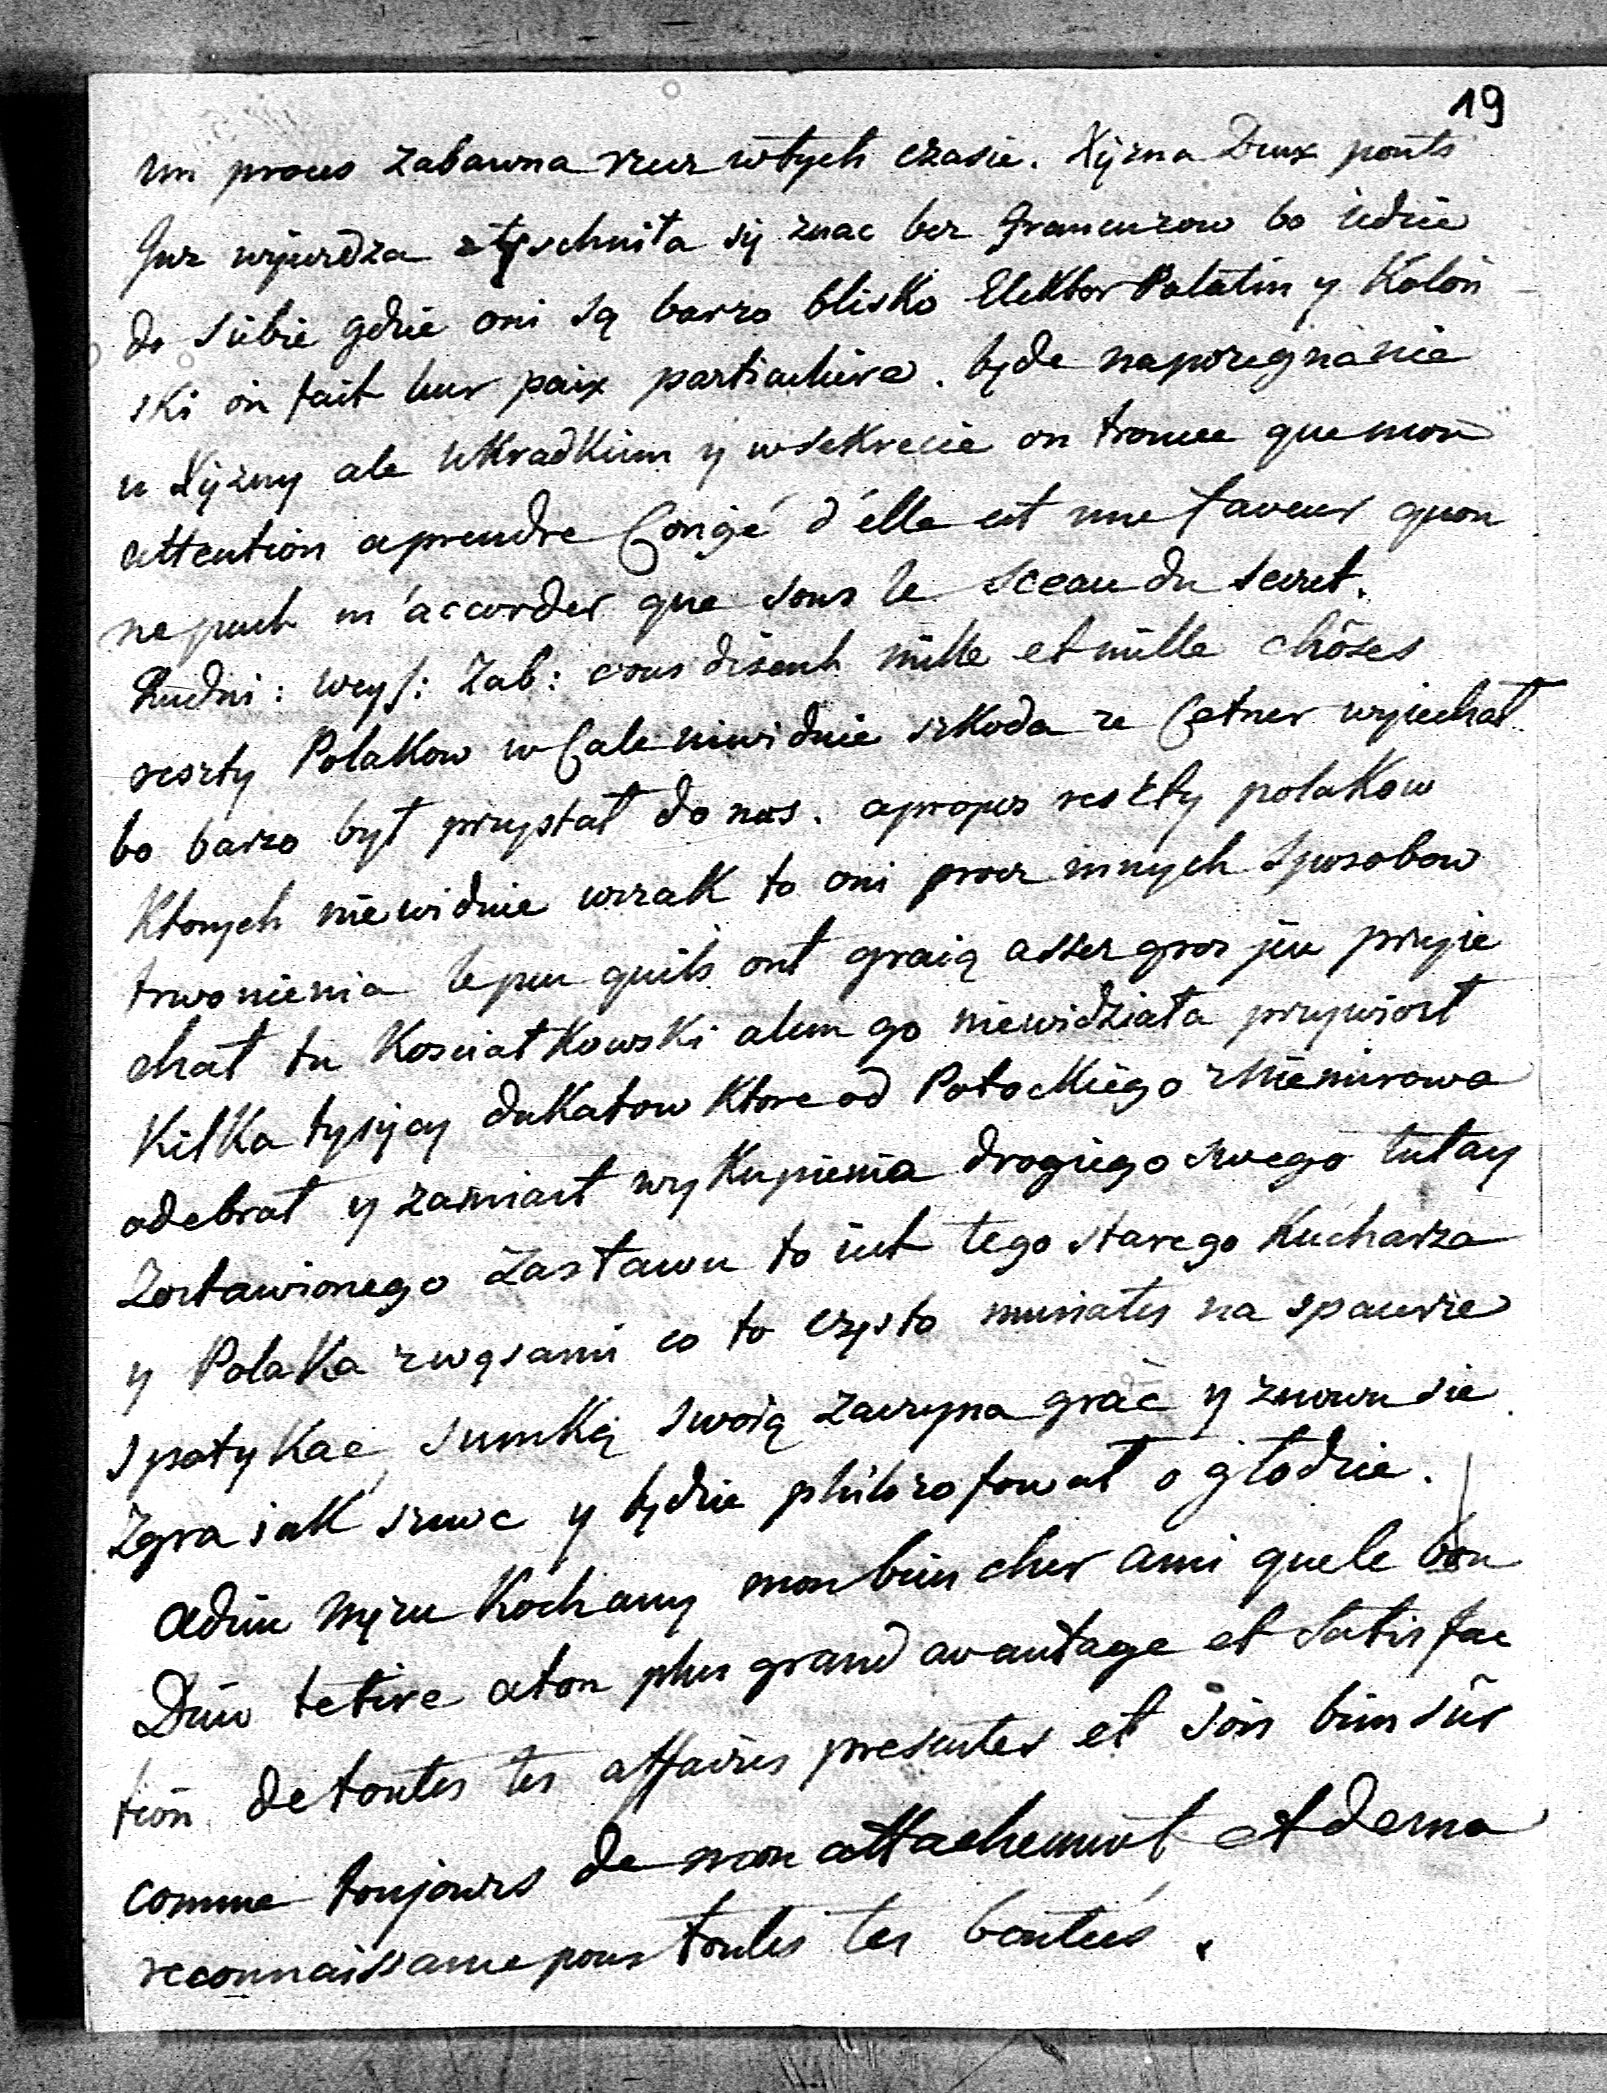 19
un proces zabawna rzecz wtych czasie. Xyzna Deux ponts
Juz wyiezdza styschniła sy znac bez francuzow bo iedzie
do siebie gdzie oni są barzo blisko Elektor Palatin y Kolon
ski on fait leur paix particuliere. będe napozegnanie
u Xyzny ale ukradkiem y wsekrecie on trouve que mon
attention aprendre Congé d'élle est une faveur quon
ne peut m'accorder que sous le sceau du secret.
Rudni: Weys: Zab: vous disent mille et mille chôses
reszty Polakow wCale niewidzie szkoda ze Cetner wyiechał
bo barzo był przystał do nas. apropos reszty polakow
Ktorych niewidzie wszak to oni procz innych sposobow
trwonienia le peu quils ont graią assez gros jeu przyie
chał tu Kosciałkowski alem go niewidziała przywiozł
Kilka tysięcy dukatow Ktore od Potockiego zNiemirowa
odebrał y zamiast wykupienia drogiego swego tutay
Zostawionego Zastawu to iest tego starego Kucharza
y Polaka zwąsami co to często musiałes na spacerze
spotykac, sumką swoią zaczyna grać y znowu sie
Zgra iak szewc y będzie philozofował o głodzie.
adieu męzu Kochany mon bien cher ami que le bon
Dieu tetire aton plus grand avantage et satisfac
tion de toutes tes affaires presentes et sois bien sûr
comme toujours de mon attachement et de ma
reconnaissance pour toutes tes bontées.